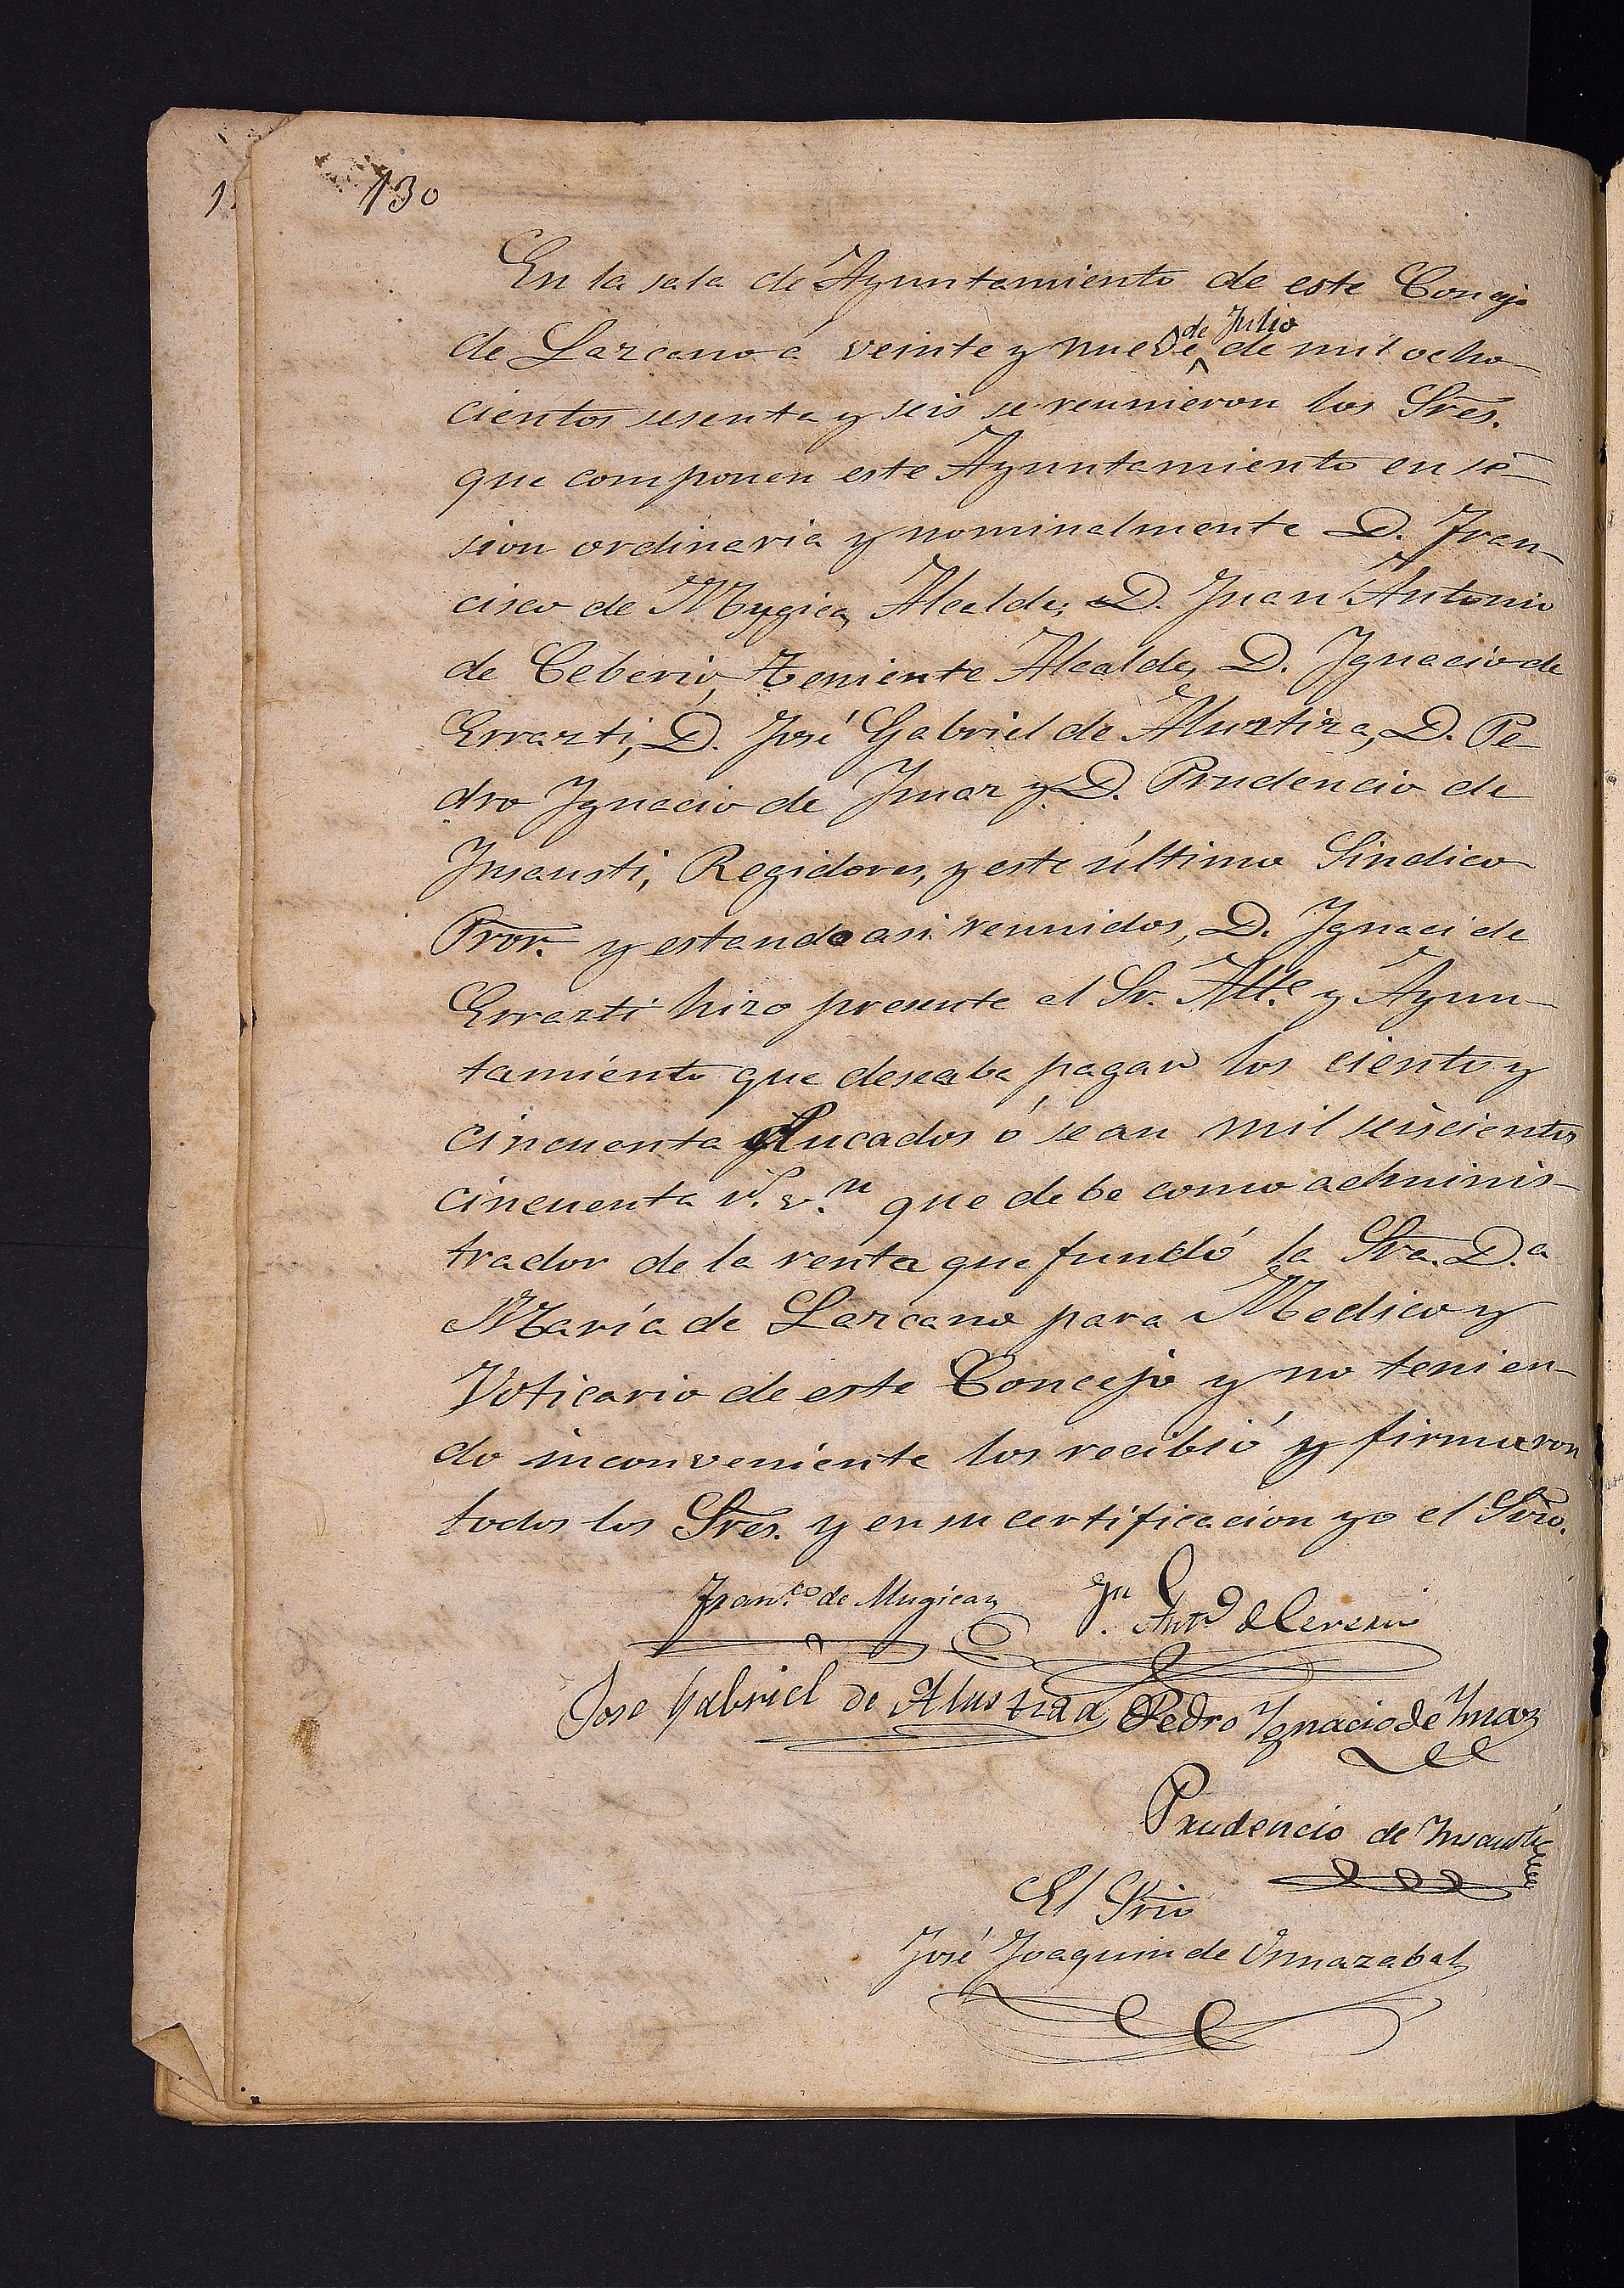 130
En la sala de Ayuntamiento de este Concejo
de Lazcano á veinte y nueve de Julio de mil ocho-
cientos sesenta y seis se reunieron los Sres.
que componen este Ayuntamiento en se-
sion ordinaria y nominalmente D. Fran-
cisco de Mugica, Alcalde, D. Juan Antonio
de Ceberio, Teniente Alcalde, D. Ygnacio de
Errazti, D. José Gabriel de Alustiza, D. Pe-
dro Ygnacio de Ymaz y D. Prudencio de
Ynsausti, Regidores, y este último Sindico
Pror. y estando asi reunidos, D. Ygnaci de
Errazti hizo presente al Sr. Alle. y Ayun-
tamiento que deseaba pagar los ciento y
cincuenta ducados ó sean mil seiscientos
cincuenta rs. vn. que debe como adminis-
trador de la renta que fundó la Sra. Da.
María de Lazcano para Medico y
Voticario de este Concejo y no tenien-
do inconveniente los recibió y firmaron
todos los Sres. y en su certificacion yo el Srio.
Franco. de Mugica
Jn Anto de Ceverio
Jose Gabriel de Alustiza Pedro Ygnacio de Ymaz
Prudencio de Ynsausti
El Srio
José Joaquin de Ormazabal